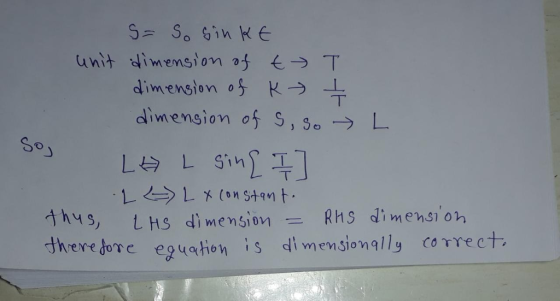 S = S₀ sin K t
unit dimension of t → T
dimension of K → 1/T
dimension of S, S₀ → L
So,
L ⇔ L sin [T/T]
L ⇔ L × constant.
thus, LHS dimension = RHS dimension
therefore equation is dimensionally correct.